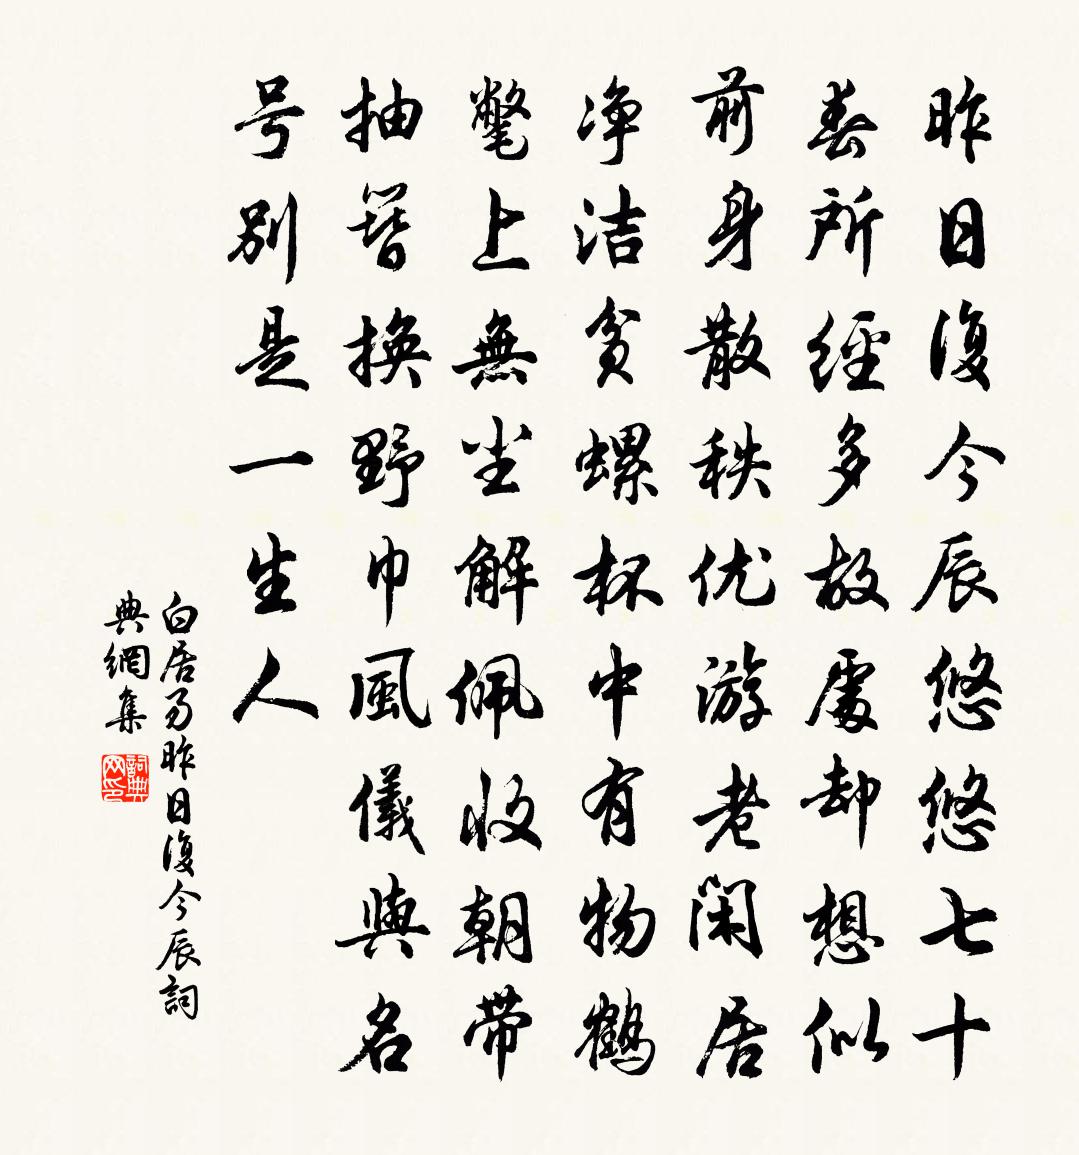 昨日復今辰悠悠七十
春所經多故處却想似
前身散秩优游老闲居
净洁貧螺杯中有物鹤
氅上無尘解佩收朝带
抽簪換野巾風儀與名
号別是一生人
白居易昨日復今辰詞
典網集
詞典
网印